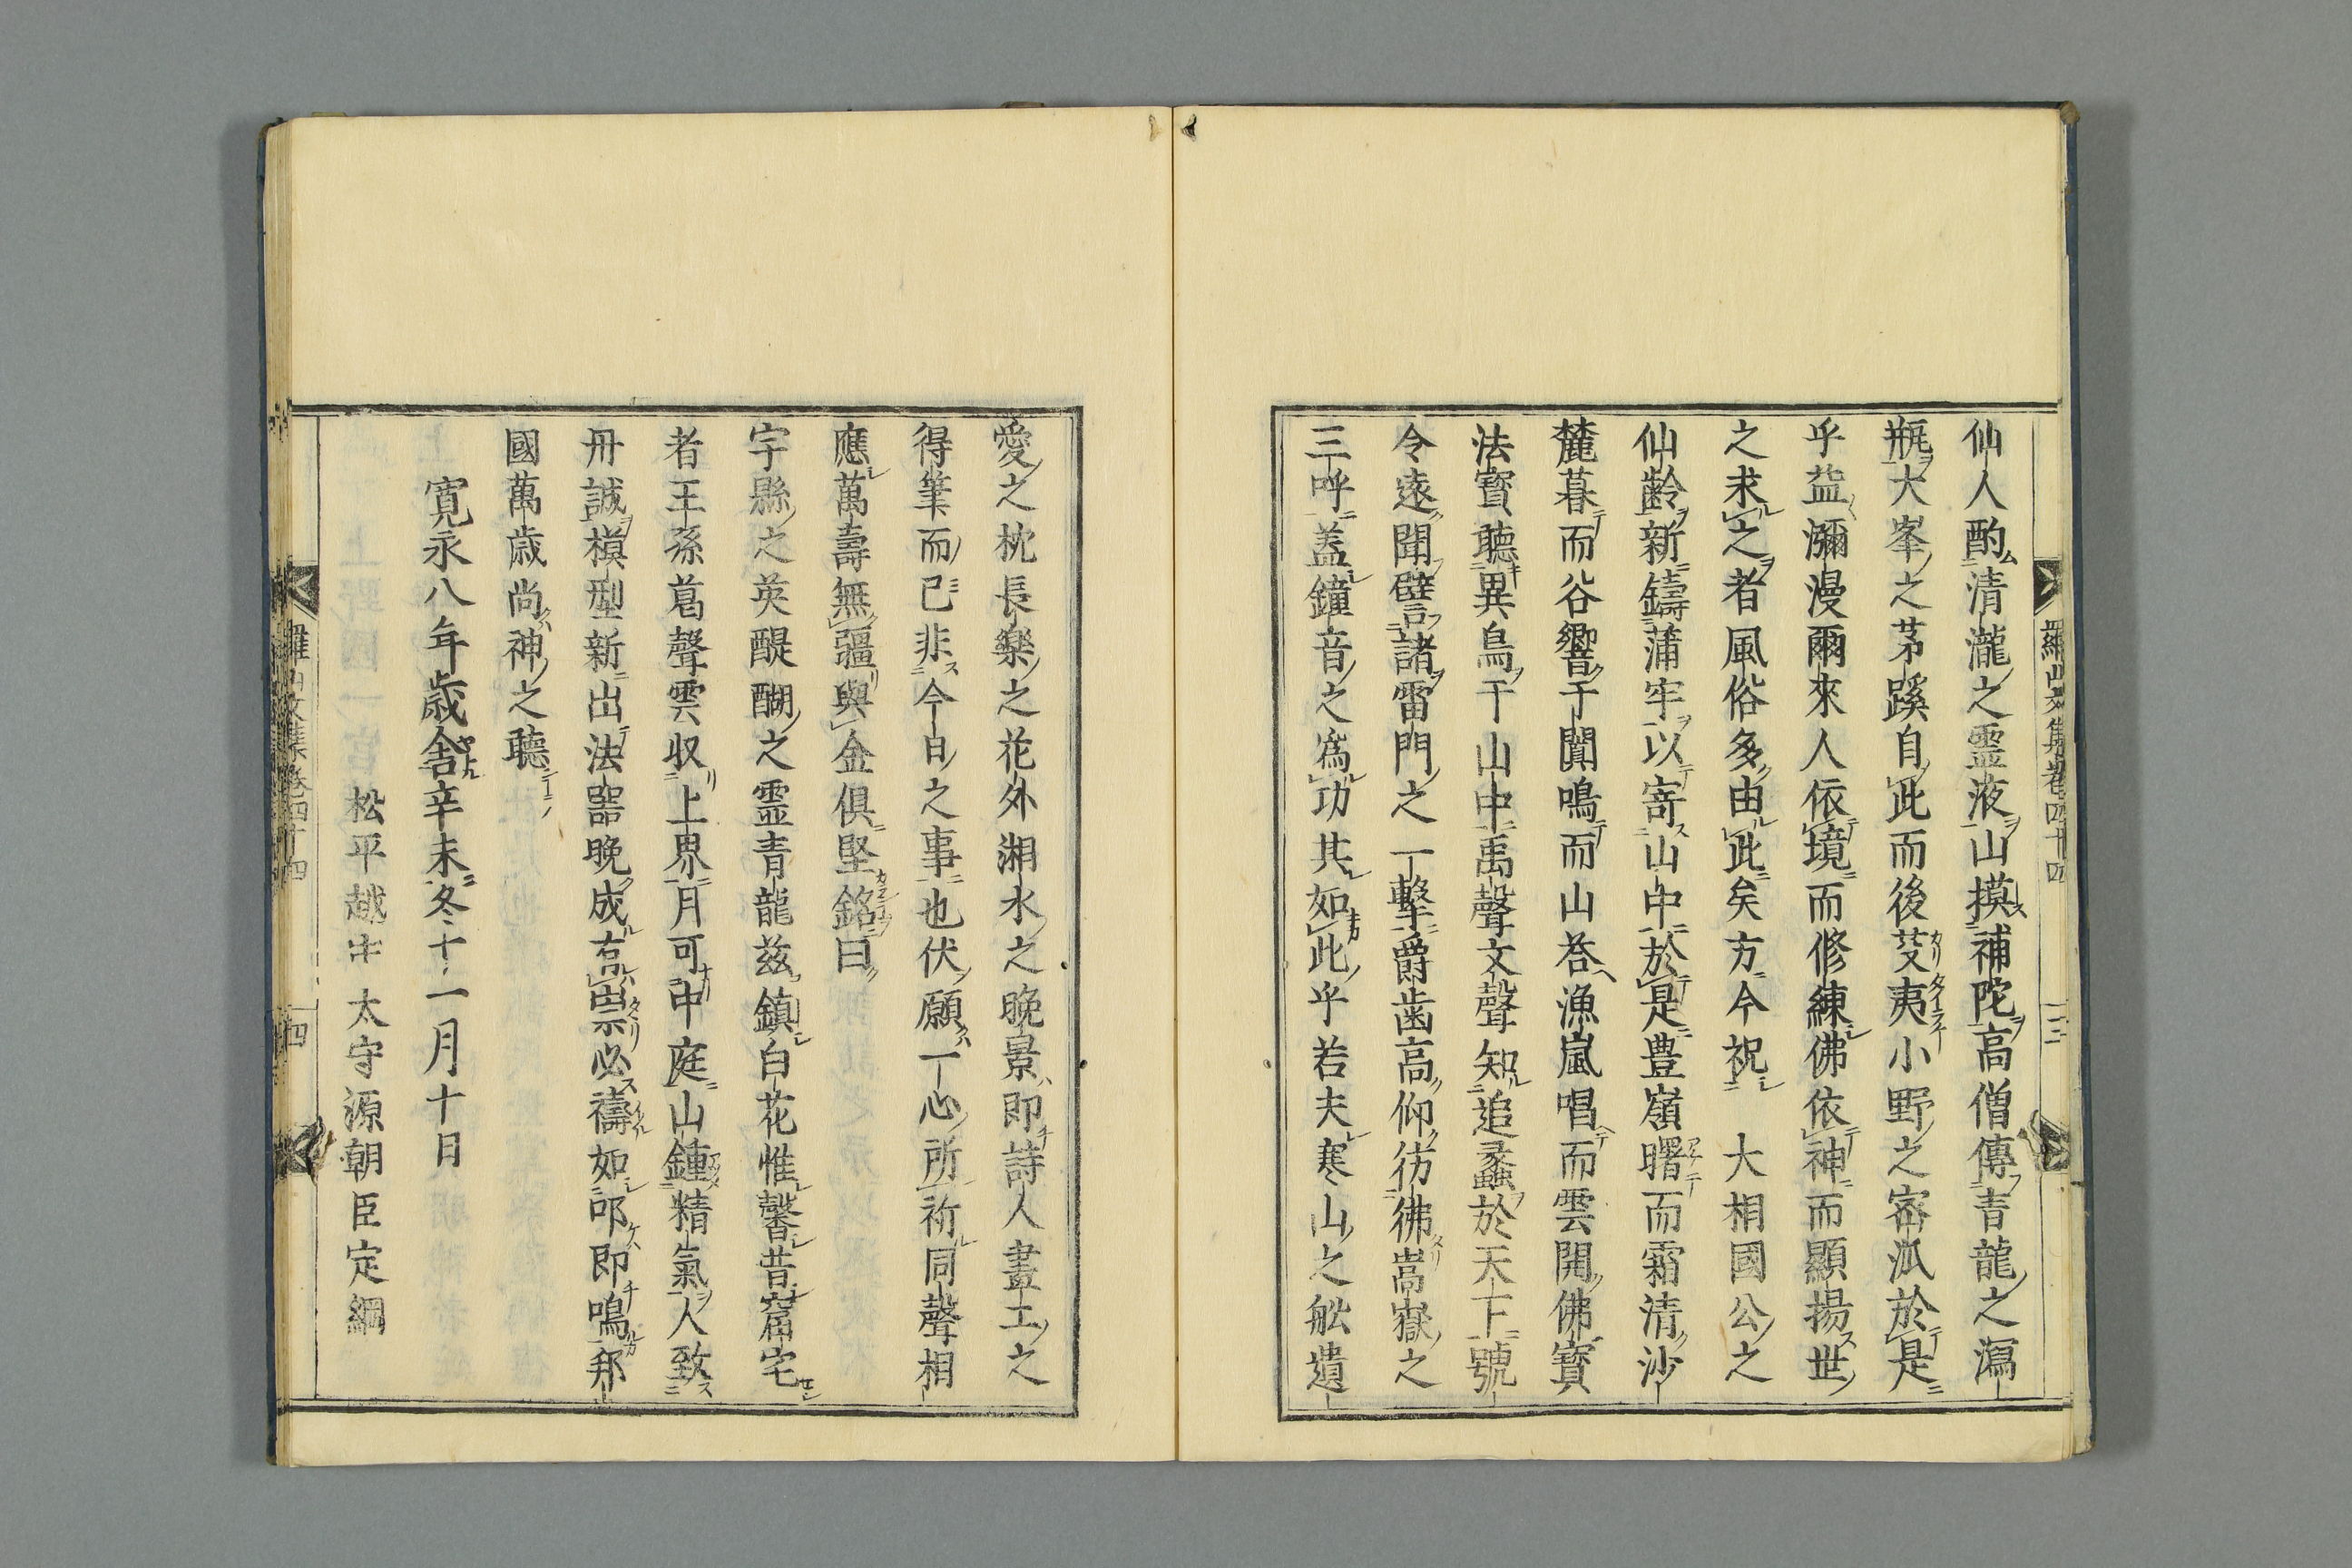 仙人酌清瀧之霊液山摸補陀高僧傳青龍之瀉
瓶大峯之茅蹊自此而後芟夷小野之密派於是
乎益瀰漫爾來人依境而修練佛依神而顯揚世
之求之者風俗多由此矣方今祝 大相國公之
仙齡新鑄蒲牢以寄山中於是豊嶺曙而霜清沙
麓暮而谷響于闐鳴而山荅漁嵐唱而雲開佛寶
法寶聽異鳥于山中禹聲文聲知追蠡於天下號
令遠聞譬諸雷門之一擊爵齒高仰彷彿嵩嶽之
三呼蓋鐘音之為功其如此乎若夫寒山之舩遺
愛之枕長樂之花外湘水之晩景即詩人畫工之
得筆而已非今日之事也伏願一心所祈同聲相
應萬壽無疆與金俱堅銘曰
宇縣之英醍醐之霊青龍兹鎮白花惟馨昔窟宅
者王孫葛聲雲収上界月可中庭山鍾精氣人致
丹誠模型新出法器晩成高崇必禱如叩即鳴邦
國萬歳尚神之聽
寛永八年歳舎辛未冬十一月十日
松平越中太守源朝臣定綱
羅山文集卷四十四
三
羅山文集卷四十四
四